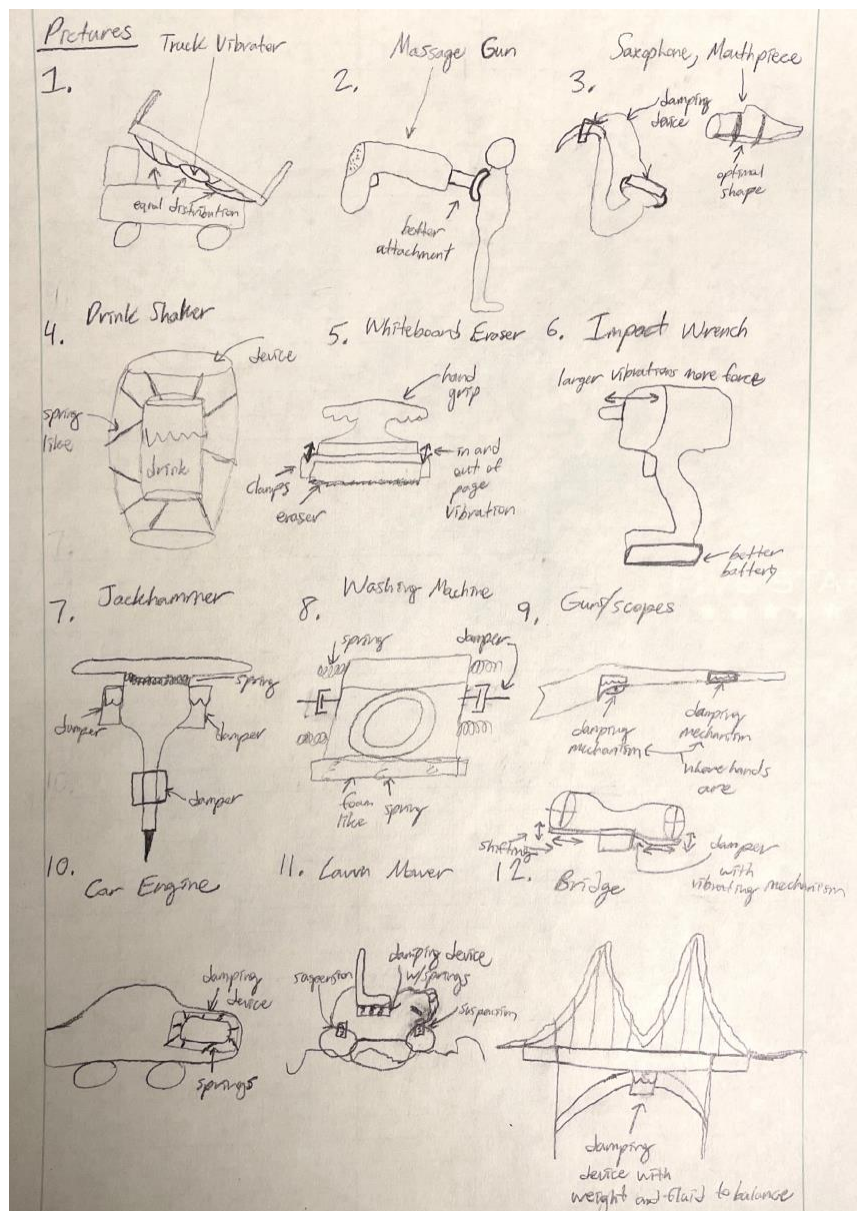 Pictures
1.
Truck Vibrator
equal distribution
2.
Massage Gun
better
attachment
3.
Saxophone, Mouthpiece
damping
device
optimal
shape
4.
Drink Shaker
device
spring
like
drink
5. Whiteboard Eraser
hand
grip
clamps
eraser
in and
out of
page
vibration
6. Impact Wrench
larger vibrations more force
better
battery
7.
Jackhammer
spring
damper
damper
damper
8.
Washing Machine
spring
damper
foam
like
spring
9.
Guns/scopes
damping
mechanism
damping
mechanism
where hands
are
shifting
damper
with
vibrating mechanism
10.
Car Engine
damping
device
springs
11. Lawn Mower
suspension
damping device
w/springs
suspension
12.
Bridge
damping
device with
weight and fluid to balance